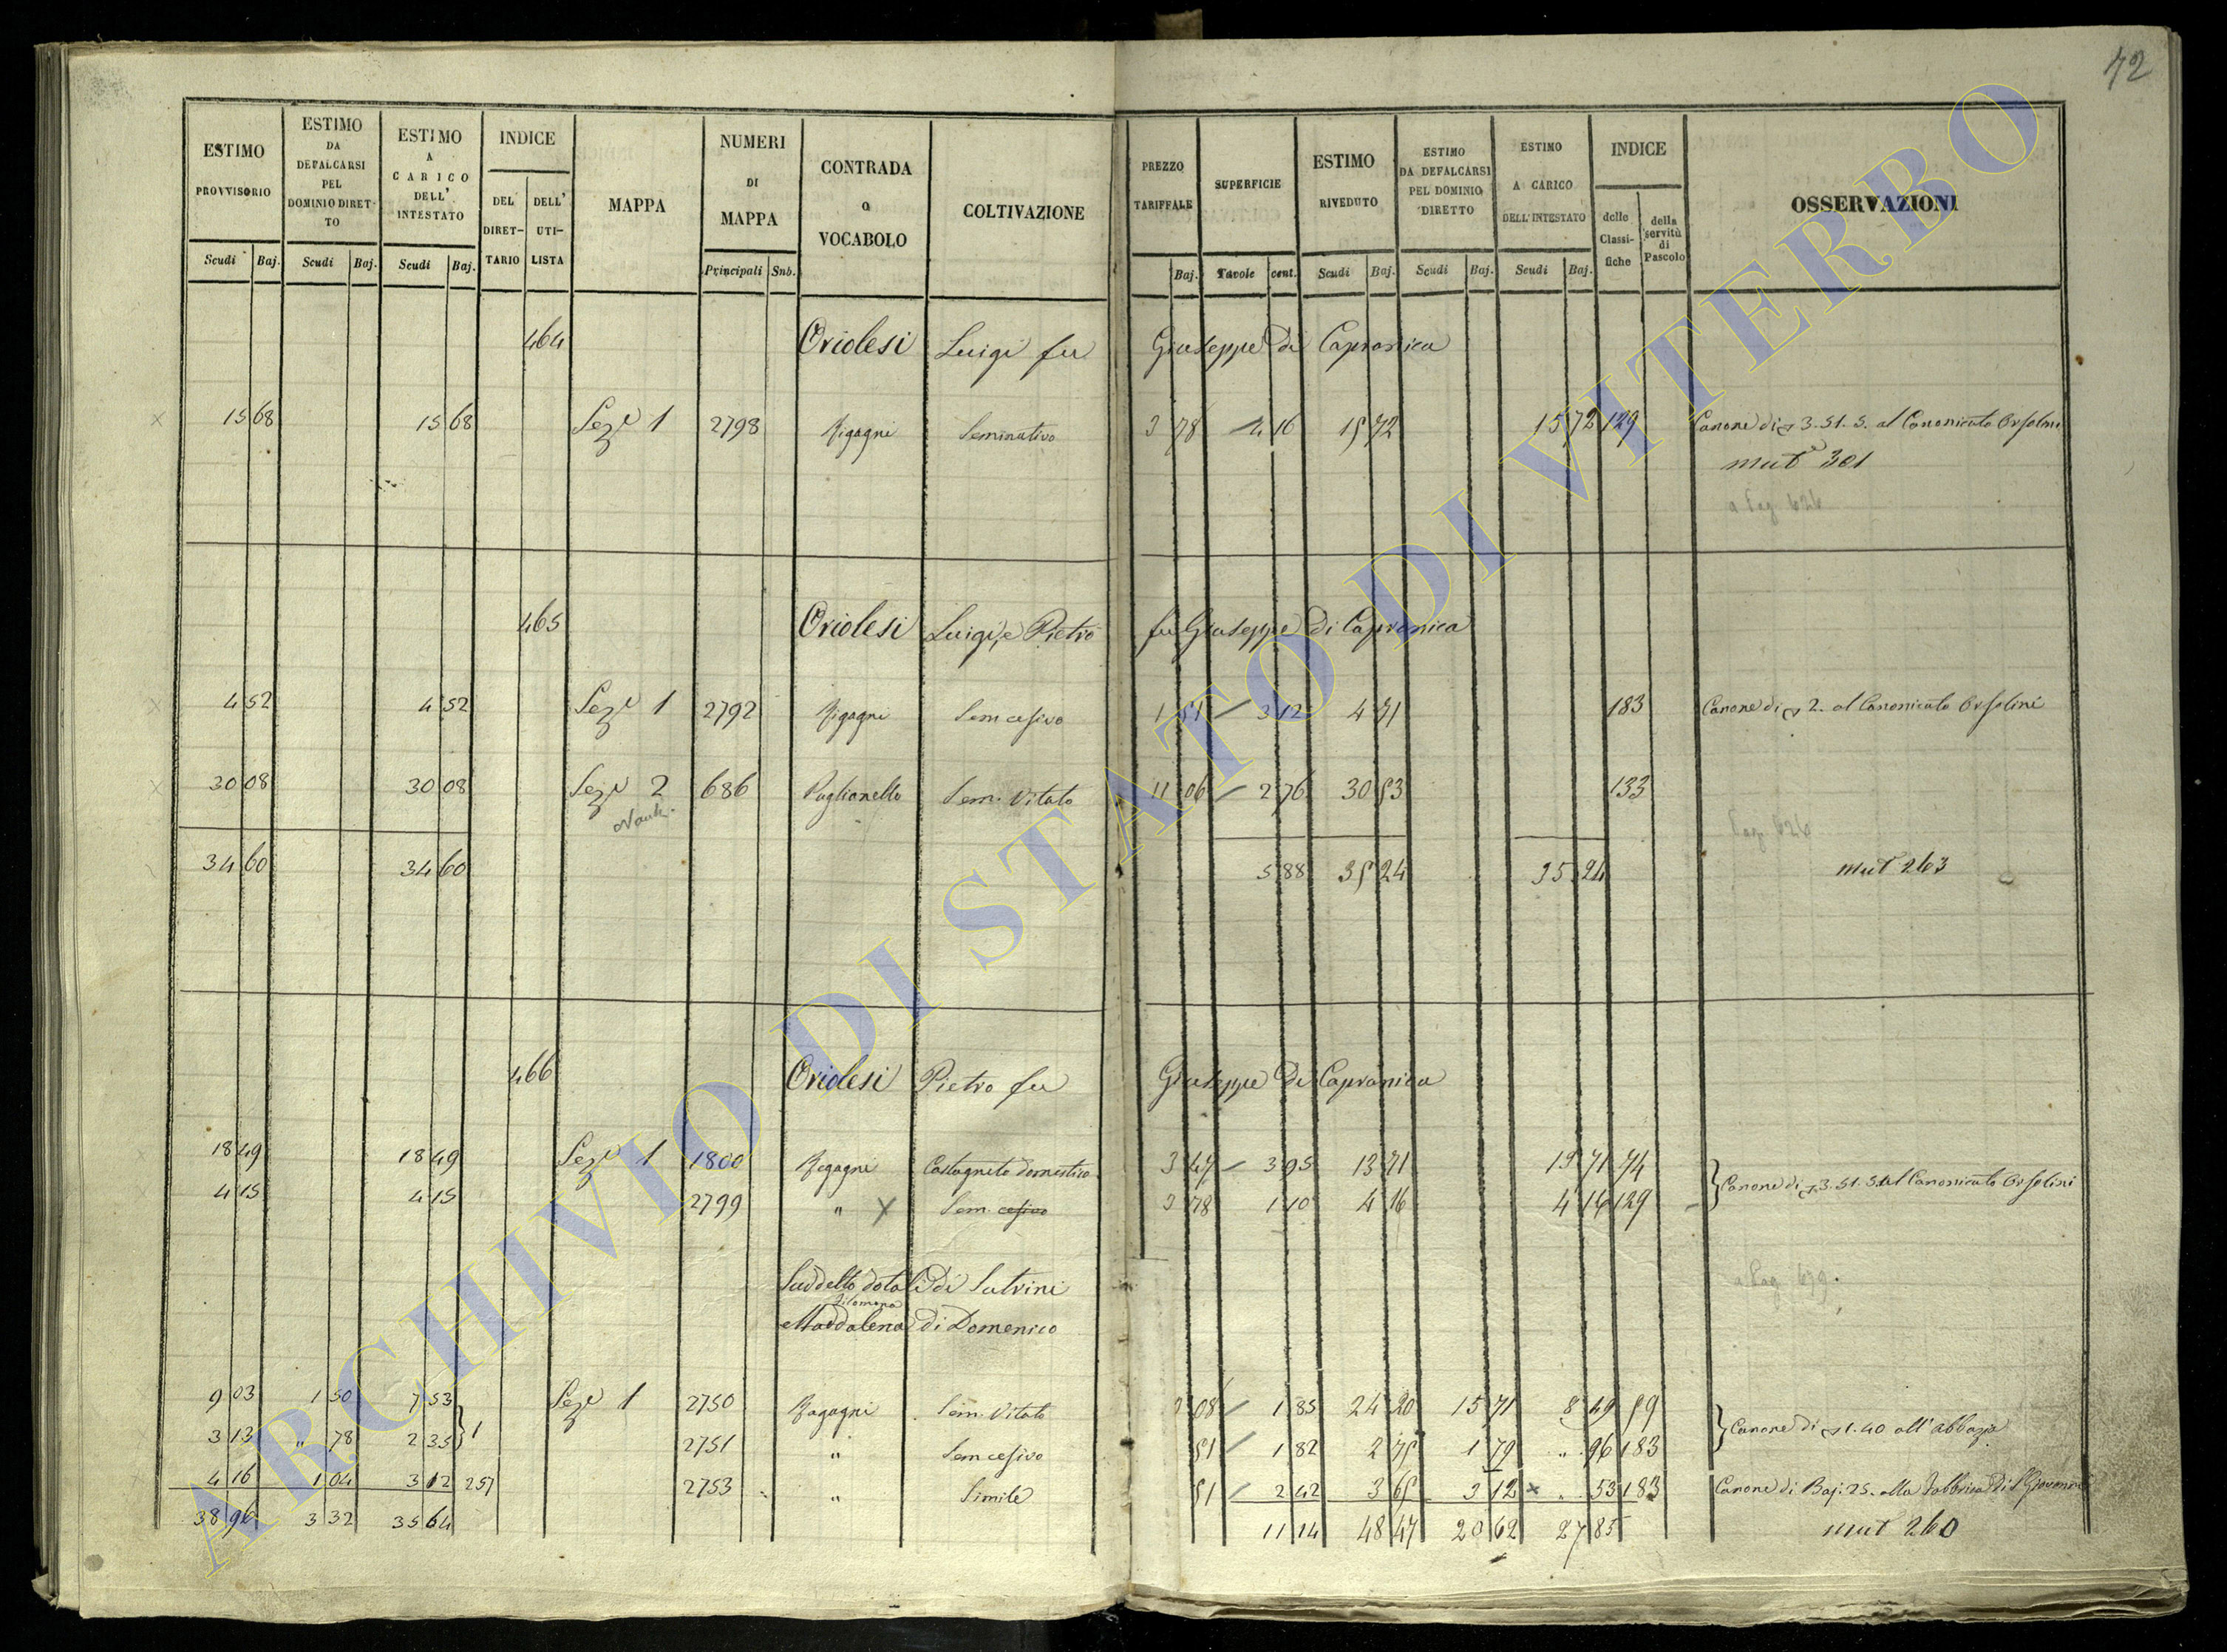 72
ESTIMO PROVVISORIO Scudi Baj.
ESTIMO DA DEFALCARSI PEL DOMINIO DIRETTO Scudi Baj.
ESTIMO A CARICO DELL' INTESTATO Scudi Baj.
INDICE DEL DIRET-TARIO DELL' UTI-LISTA
MAPPA
NUMERI DI MAPPA Principali Sub.
CONTRADA o VOCABOLO
COLTIVAZIONE
PREZZO TARIFFALE Baj.
SUPERFICIE Tavole cent.
ESTIMO RIVEDUTO Scudi Baj.
ESTIMO DA DEFALCARSI PEL DOMINIO DIRETTO Scudi Baj.
ESTIMO A CARICO DELL'INTESTATO Scudi Baj.
INDICE delle Classi-fiche della servitù di Pascolo
OSSERVAZIONI
464 Oriolesi Luigi fu Giuseppe Di Capranica
15 68 15 68 Sez.e 1 2798 Rigagni Seminativo 3 78 4 16 15 72 15 72 129 Canone di 3.51.5. al Canonicato Orsolini
mut 301
a Pag 626
465 Oriolesi Luigi, e Pietro fu Giuseppe Di Capranica
4 52 4 52 Sez.e 1 2792 Rigagni Sem cesivo 1 51 3 12 4 71 183 Canone di 2. al Canonicato Orsolini
30 08 30 08 Sez.e 2 686 Puglianello Sem. Vitato 11 06 2 76 30 53 133
Pag. 626
34 60 34 60 5 88 35 24 35 24 mut 263
466 Oriolesi Pietro fu Giuseppe Di Capranica
18 49 18 49 Sez.e 1 1800 Rigagni Castagneto domestico 3 47 3 95 13 71 13 71 74
4 15 4 15 2799 " X Sem. cesivo 3 78 1 10 4 16 4 16 129 Canone di 3.51.5 al Canonicato Orsolini
Suddetto dotali di Salvini
Filomena
Maddalena di Domenico
a Pag 679.
9 03 1 50 7 53 Sez.e 1 2750 Ragagni Sem. Vitato 08 1 85 24 20 15 71 8 49 59
3 13 " 78 2 35 1 2751 " Sem cesivo 51 1 82 2 75 1 79 " 96 183 Canone di 1.40 all'abbazia
4 16 1 04 3 12 257 2753 " Simile 51 2 42 3 65 3 12 x " 53 183 Canone di Baj: 25. alla Fabbrica di S Giovanni
38 96 3 32 35 64 11 14 48 47 20 62 27 85 mut 260
ARCHIVIO DI STATO DI VITERBO